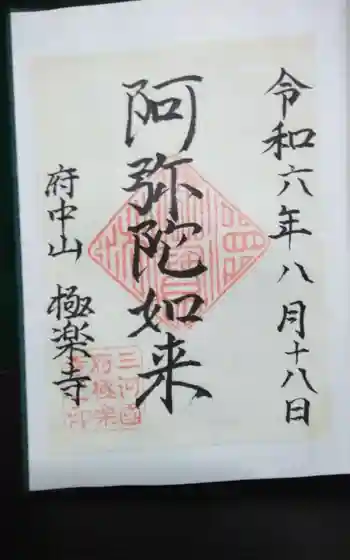 令和六年八月十八日
阿弥陀如来
府中山 極楽寺
三河國
府極楽